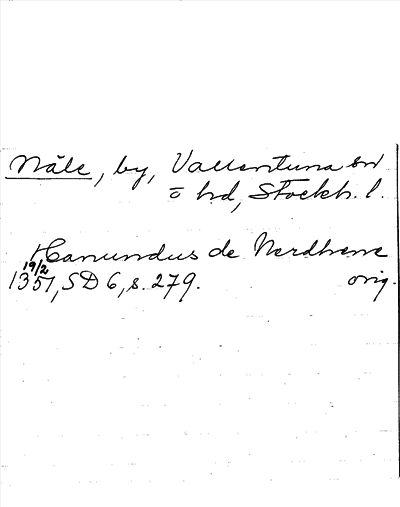 Nåle, by, Vallentuna sn
o hd, Stockh. l.
Hanundus de Nerdhrene
19/2
1351, SD 6, s. 279. orig.